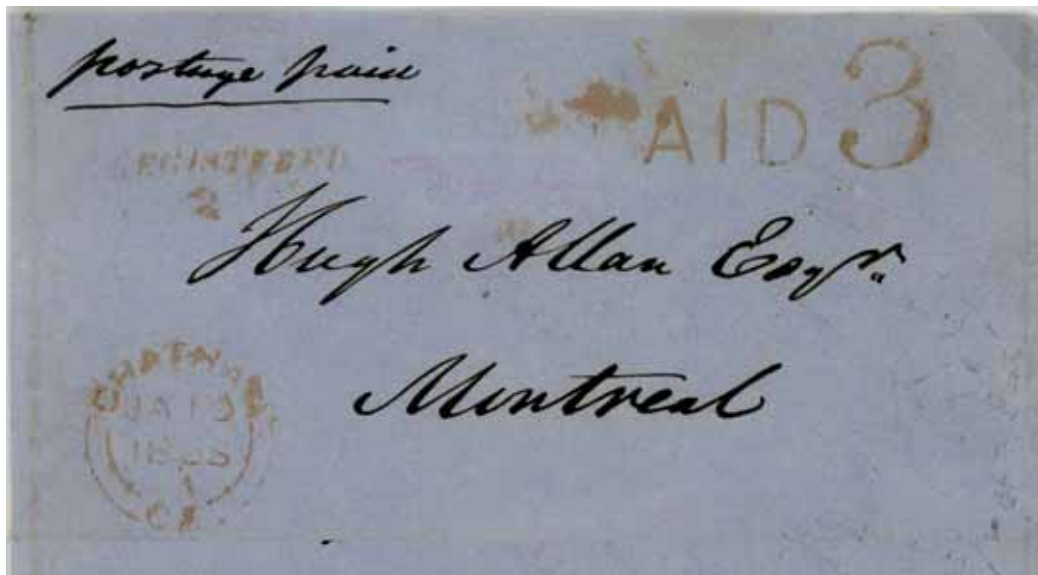 postage paid
PAID 3
REGISTERED
Hugh Allan Esqr.
Montreal
JA 19